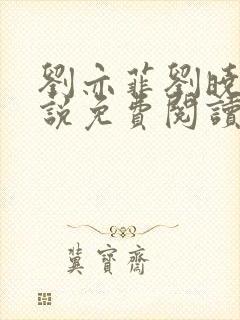 劉亦菲劉曉
說免費閱讀
冀寶齋